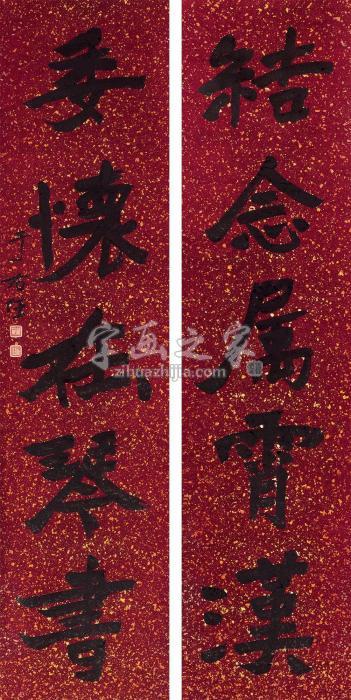 結念屬霄漢
委懷在琴書
于右任
字画之家
zihuazhijia.com